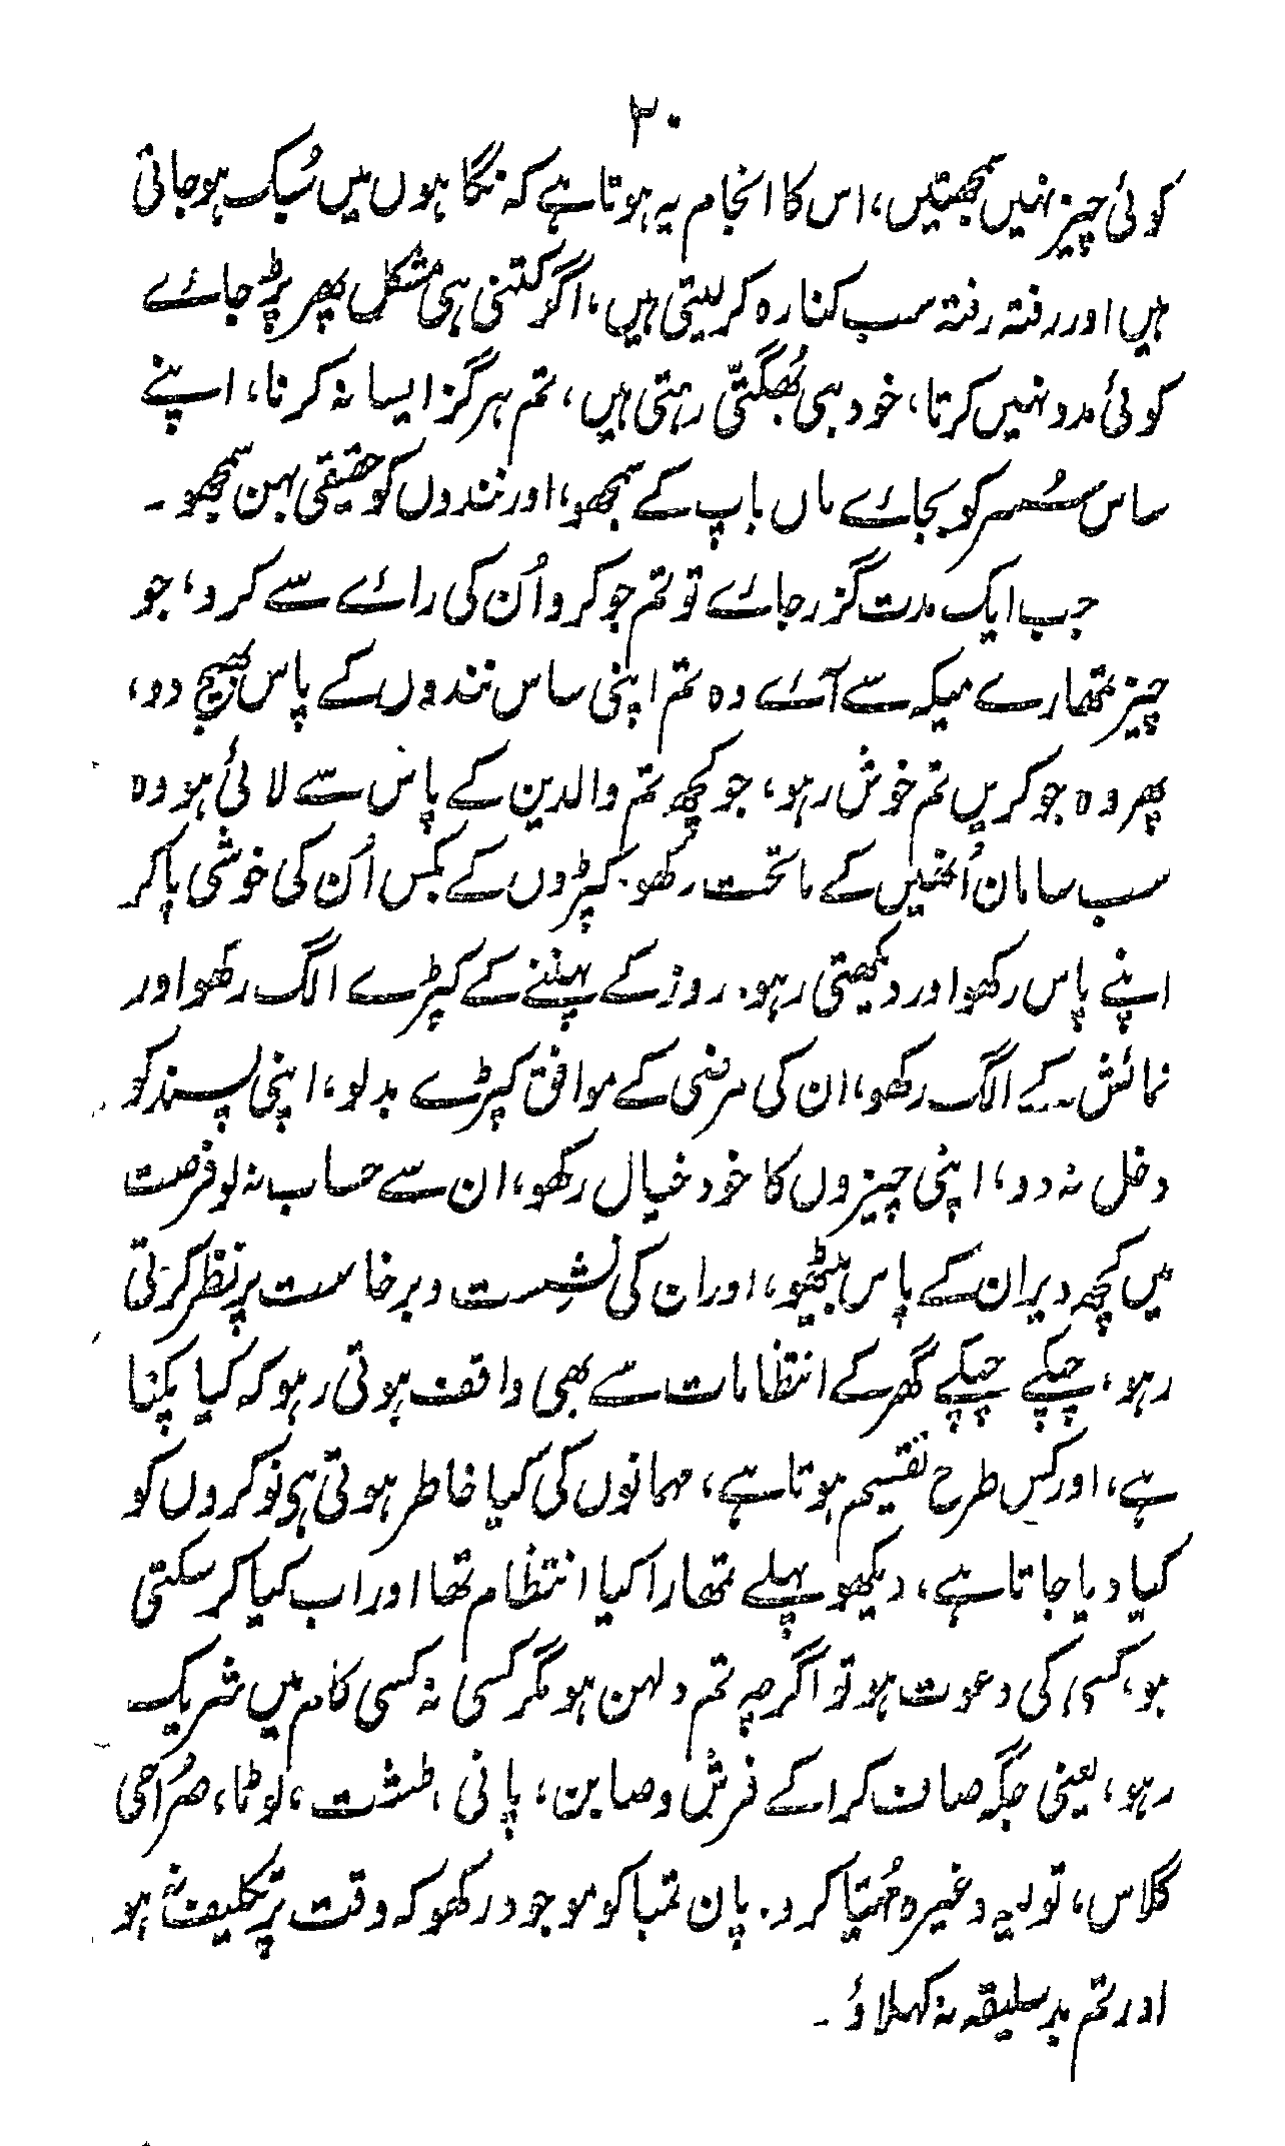 ۳۰
کوئی چیز نہیں سمجھتیں، اس کا انجام یہ ہوتا ہے کہ نگاہوں میں سُبک ہوجاتی
ہیں اور رفتہ رفتہ سب کنارہ کر لیتی ہیں، اگر کتنی ہی مشکل پھر پڑ جائے
کوئی مدد نہیں کرتا، خود ہی بُھگتتی رہتی ہیں، تم ہرگز ایسا نہ کرنا، اپنے
ساس سُسر کو بجائے ماں باپ کے سمجھو، اور نندوں کو حقیقی بہن سمجھو۔
جب ایک مدت گزر جائے تو تم جو کرو اُن کی رائے سے کرو، جو
چیز تمھارے میکہ سے آئے وہ تم اپنی ساس نندوں کے پاس بھیج دو،
پھر وہ جو کریں تم خوش رہو، جو کچھ تم والدین کے پاس سے لائی ہو وہ
سب سامان اُنھیں کے ماتحت رکھو۔ کپڑوں کے بکس اُن کی خوشی پاکر
اپنے پاس رکھو اور دیکھتی رہو۔ روز کے پہننے کے کپڑے الگ رکھو اور
نمائش کے الگ رکھو، ان کی مرضی کے موافق کپڑے بدلو، اپنی پسند کو
دخل نہ دو، اپنی چیزوں کا خود خیال رکھو، ان سے حساب نہ لو فرصت
میں کچھ دیر ان کے پاس بیٹھو، اور ان کی نشِست و برخاست پر نظر کرتی
رہو، چپکے چپکے گھر کے انتظامات سے بھی واقف ہوتی رہو کہ کیا پکنا
ہے، اور کس طرح تقسیم ہوتا ہے، مہمانوں کی کیا خاطر ہوتی ہی نوکروں کو
کیا دیا جاتا ہے، دیکھو پہلے تمھارا کیا انتظام تھا اور اب کیا کر سکتی
ہو، کسی کی دعوت ہو تو اگرچہ تم دلہن ہو مگر کسی نہ کسی کام میں شریک
رہو، یعنی جگہ صاف کراکے فرش و صابن، پانی، طشت، لوٹا، صُراحی
گلاس، تولیہ وغیرہ مُہیّا کرد۔ پان تمباکو موجود رکھو کہ وقت پر تکلیف نہ ہو
اور تم بد سلیقہ نہ کہلاؤ۔